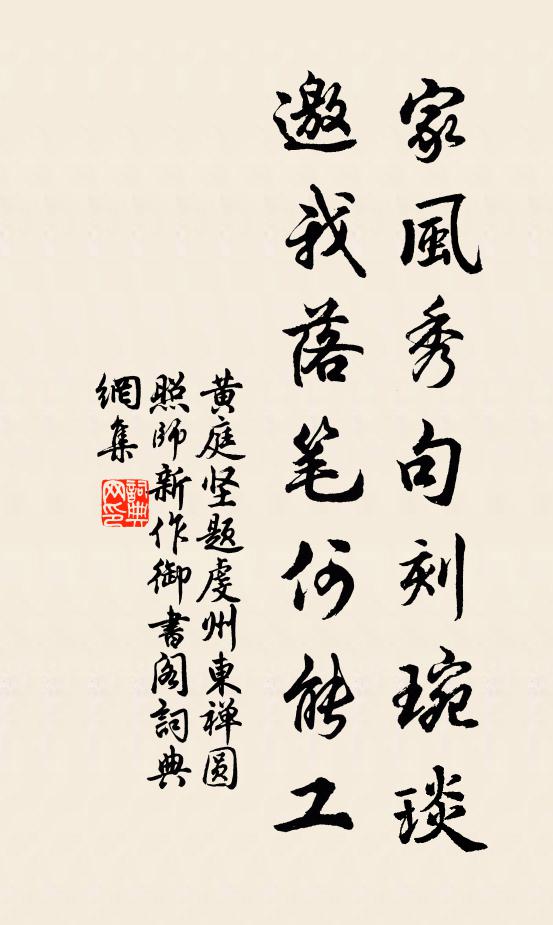 家風秀句刻琬琰
邀我落笔何能工
黄庭坚题虔州東禅圆
照師新作御書阁詞典
網集
詞典網印